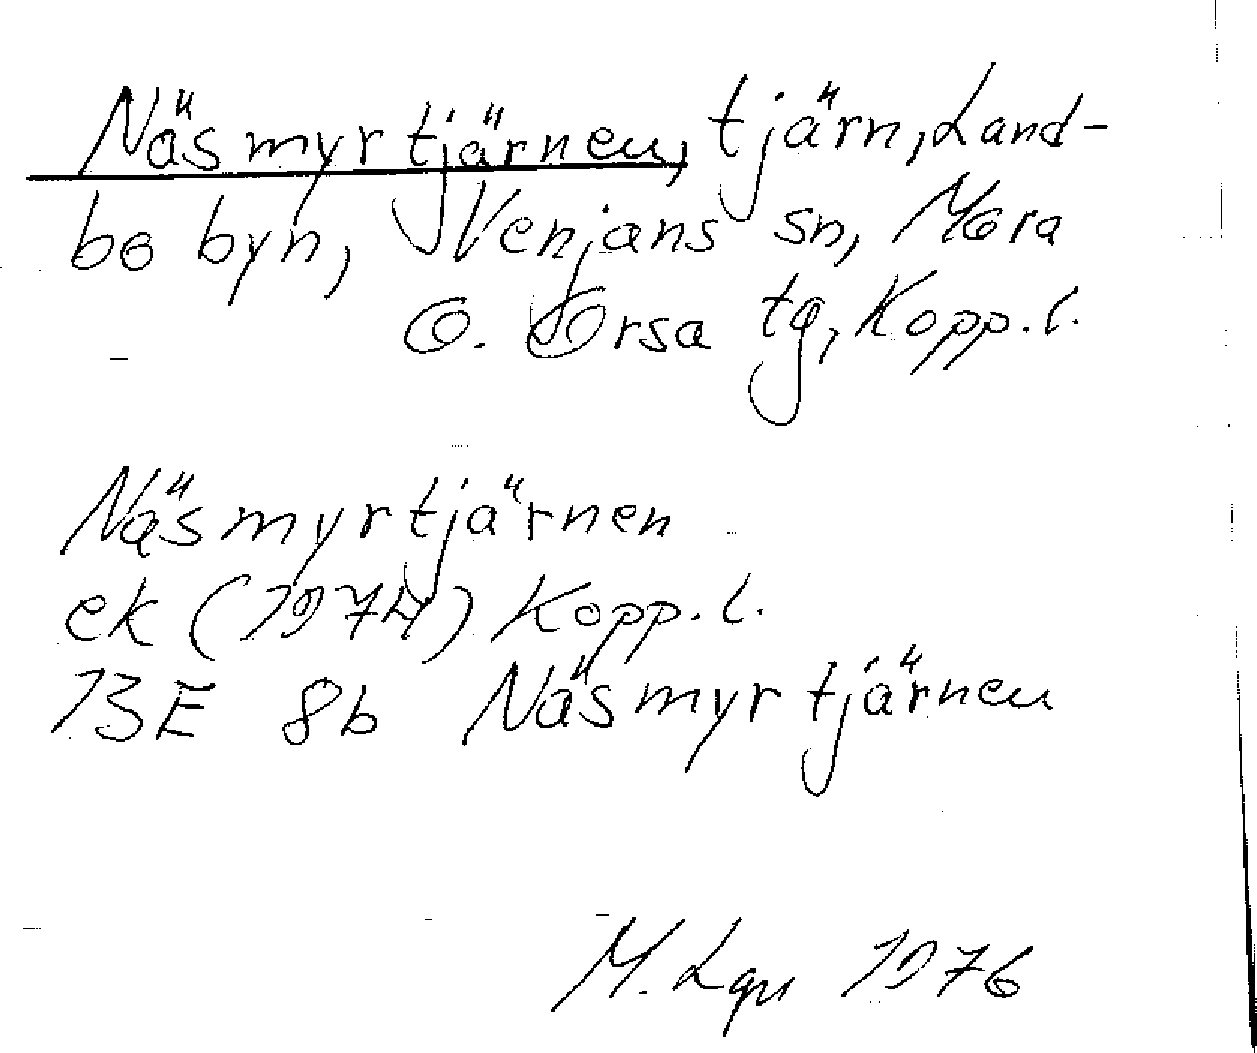 Näsmyrtjärnen, tjärn, Land-
bo byn, Venjans sn, Mora
o. Orsa tg, Kopp. l.
Näsmyrtjärnen
ek (1974) Kopp. l.
13E 8b Näsmyrtjärnen
M. Lgn 1976